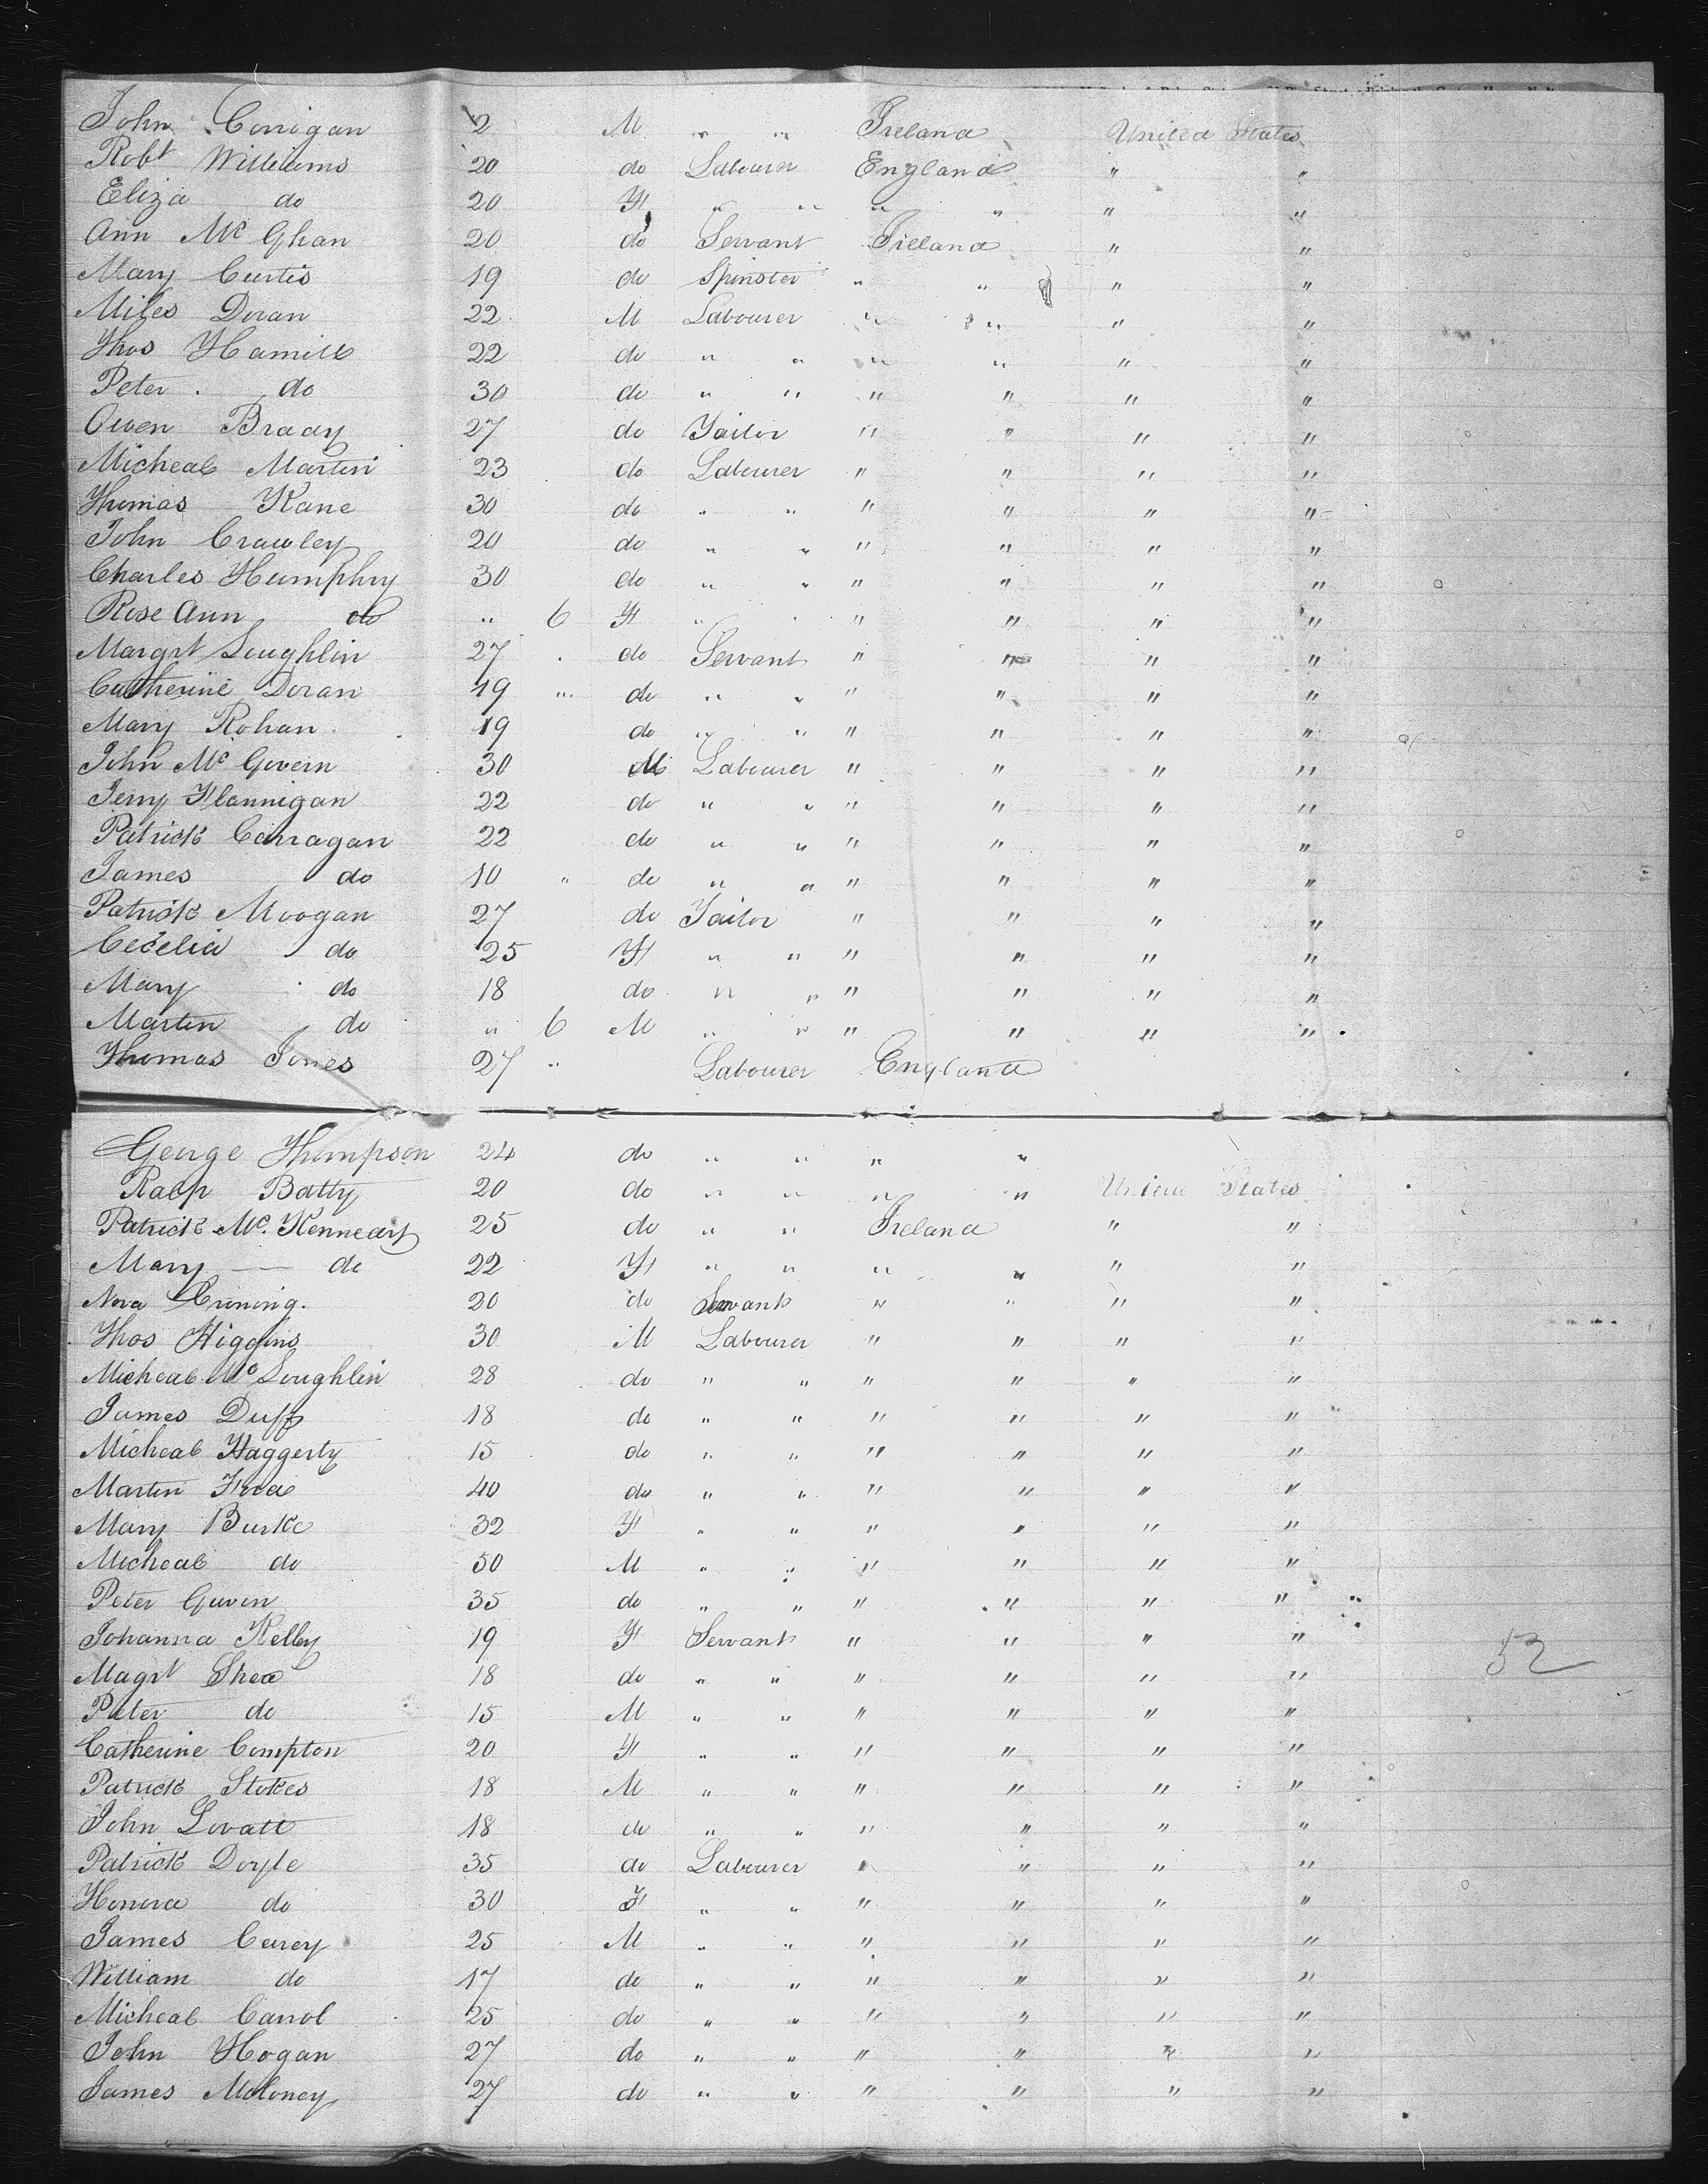 John Corrigan 2 M " " Ireland United States
Robt Williams 20 do Labourer England " "
Eliza do 20 F " " " " " "
Ann Mc Ghan 20 do Servant Ireland " "
Mary Curtis 19 do Spinster " " " "
Miles Doran 22 M Labourer " " " "
Thos Hamill 22 do " " " " " "
Peter do 30 do " " " " " "
Owen Brady 27 do Tailor " " " "
Micheal Martin 23 do Labourer " " " "
Thomas Kane 30 do " " " " " "
John Crawley 20 do " " " " " "
Charles Humphry 30 do " " " " " "
Rose Ann do " 6 F " " " " "
Margrt Loughlin 27 do Servant " " " "
Catherine Doran 19 " do " " " " " "
Mary Rohan 19 do " " " " " "
John Mc Govern 30 M Labourer " " " "
Jerry Flannigan 22 do " " " " " "
Patrick Carragan 22 do " " " " " "
James do 10 " do " " " " " "
Patrick Moogan 27 do Tailor " " " "
Cecelia do 25 F " " " " " "
Mary do 18 do " " " " " "
Martin do " 6 M " " " " " "
Thomas Jones 27 " Labourer England
George Thompson 24 do " " " "
Ralp Batty 20 do " " " " United States
Patrick Mc. Kenneary 25 do " " Ireland " "
Mary — do 22 F " " " " " "
Nora Cruning. 20 do Servant " " " "
Thos Higgins 30 M Labourer " " " "
Micheal Mc Loughlin 28 do " " " " " "
James Duff 18 do " " " " " "
Micheal Haggerty 15 do " " " " " "
Martin 40 do " " " " " "
Mary Burke 32 F " " " " " "
Micheal do 50 M " " " " " "
Peter Guven 35 do " " " " " "
Johanna Kelley 19 F Servant " " " "
Magrt Shea 18 do " " " " " "
Peter do 15 M " " " " " "
Catherine Compton 20 F " " " " " "
Patrick Stokes 18 M " " " " " "
John Lovatt 18 do " " " " " "
Patrick Doyle 35 do Labourer " " " "
Honora do 30 F " " " " " "
James Carey 25 M " " " " " "
William do 17 do " " " " " "
Micheal Carrol 25 do " " " " " "
John Hogan 27 do " " " " " "
James Moloney 27 do " " " " " "
52